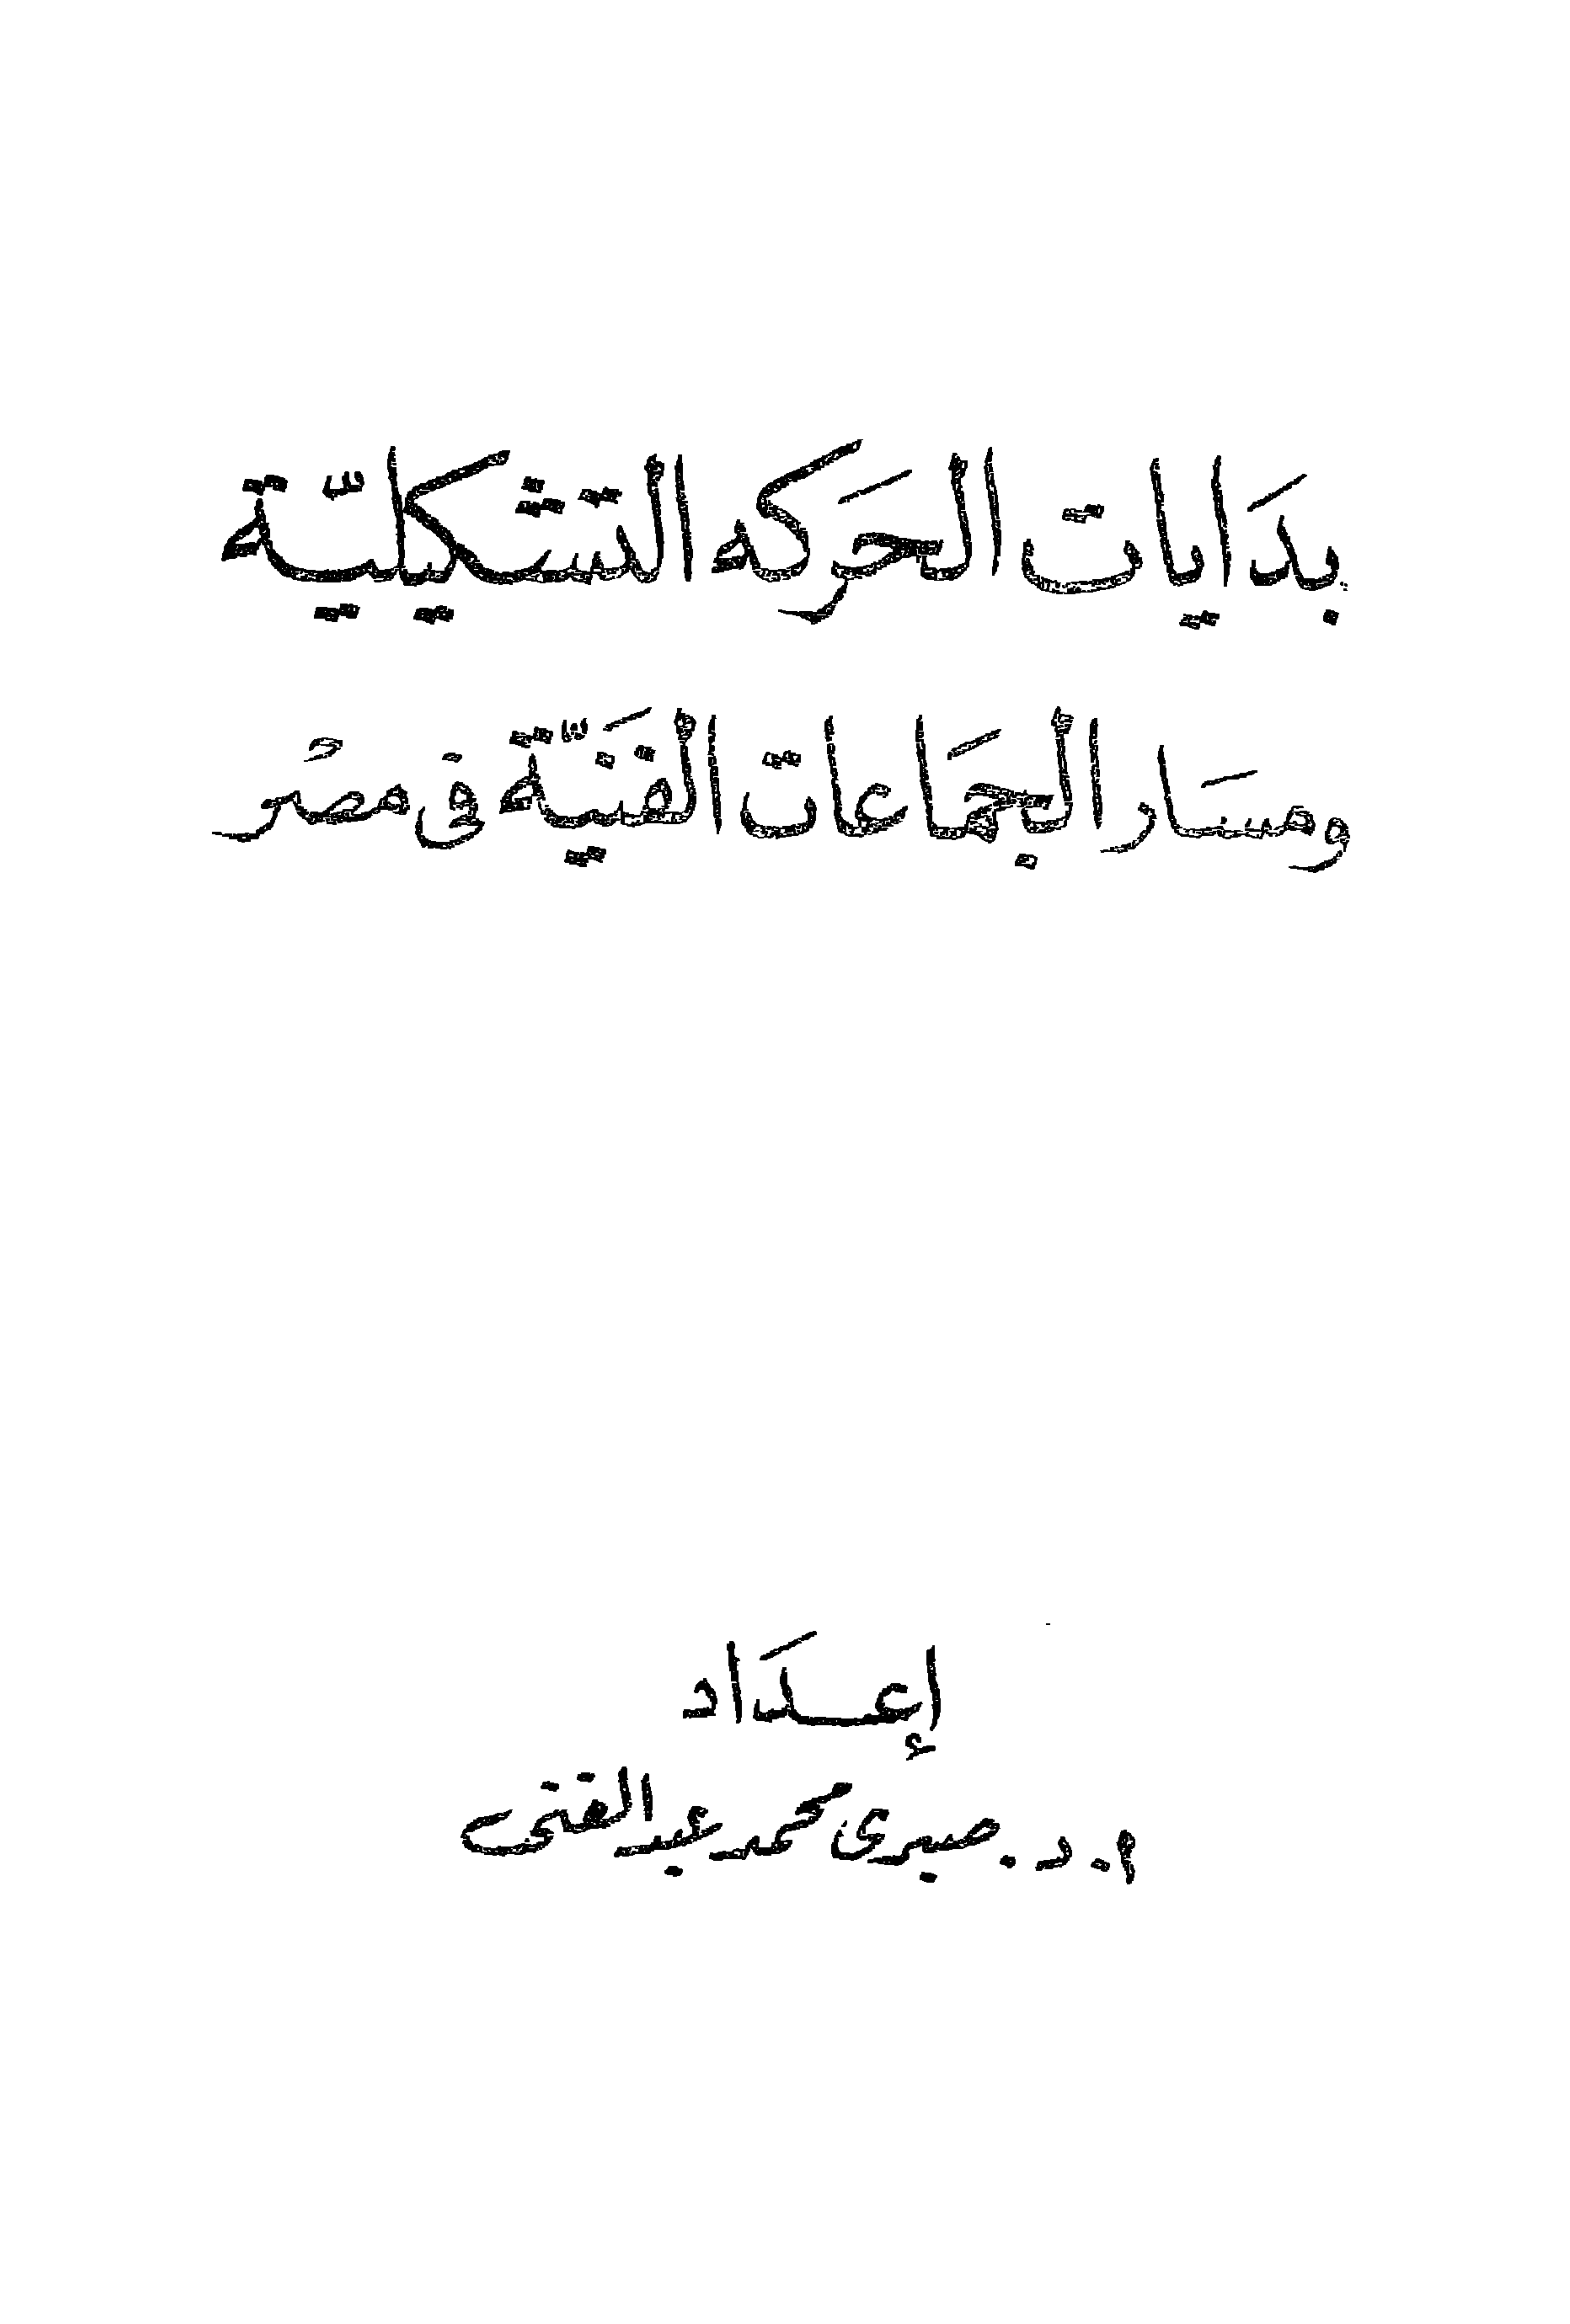 بدَايات الحَركه التشكيليّة
ومسَار الجمَاعات الفَنيّة فى مصْر
إعـدَاد
م. د. صبرى محمد عبدالغنى